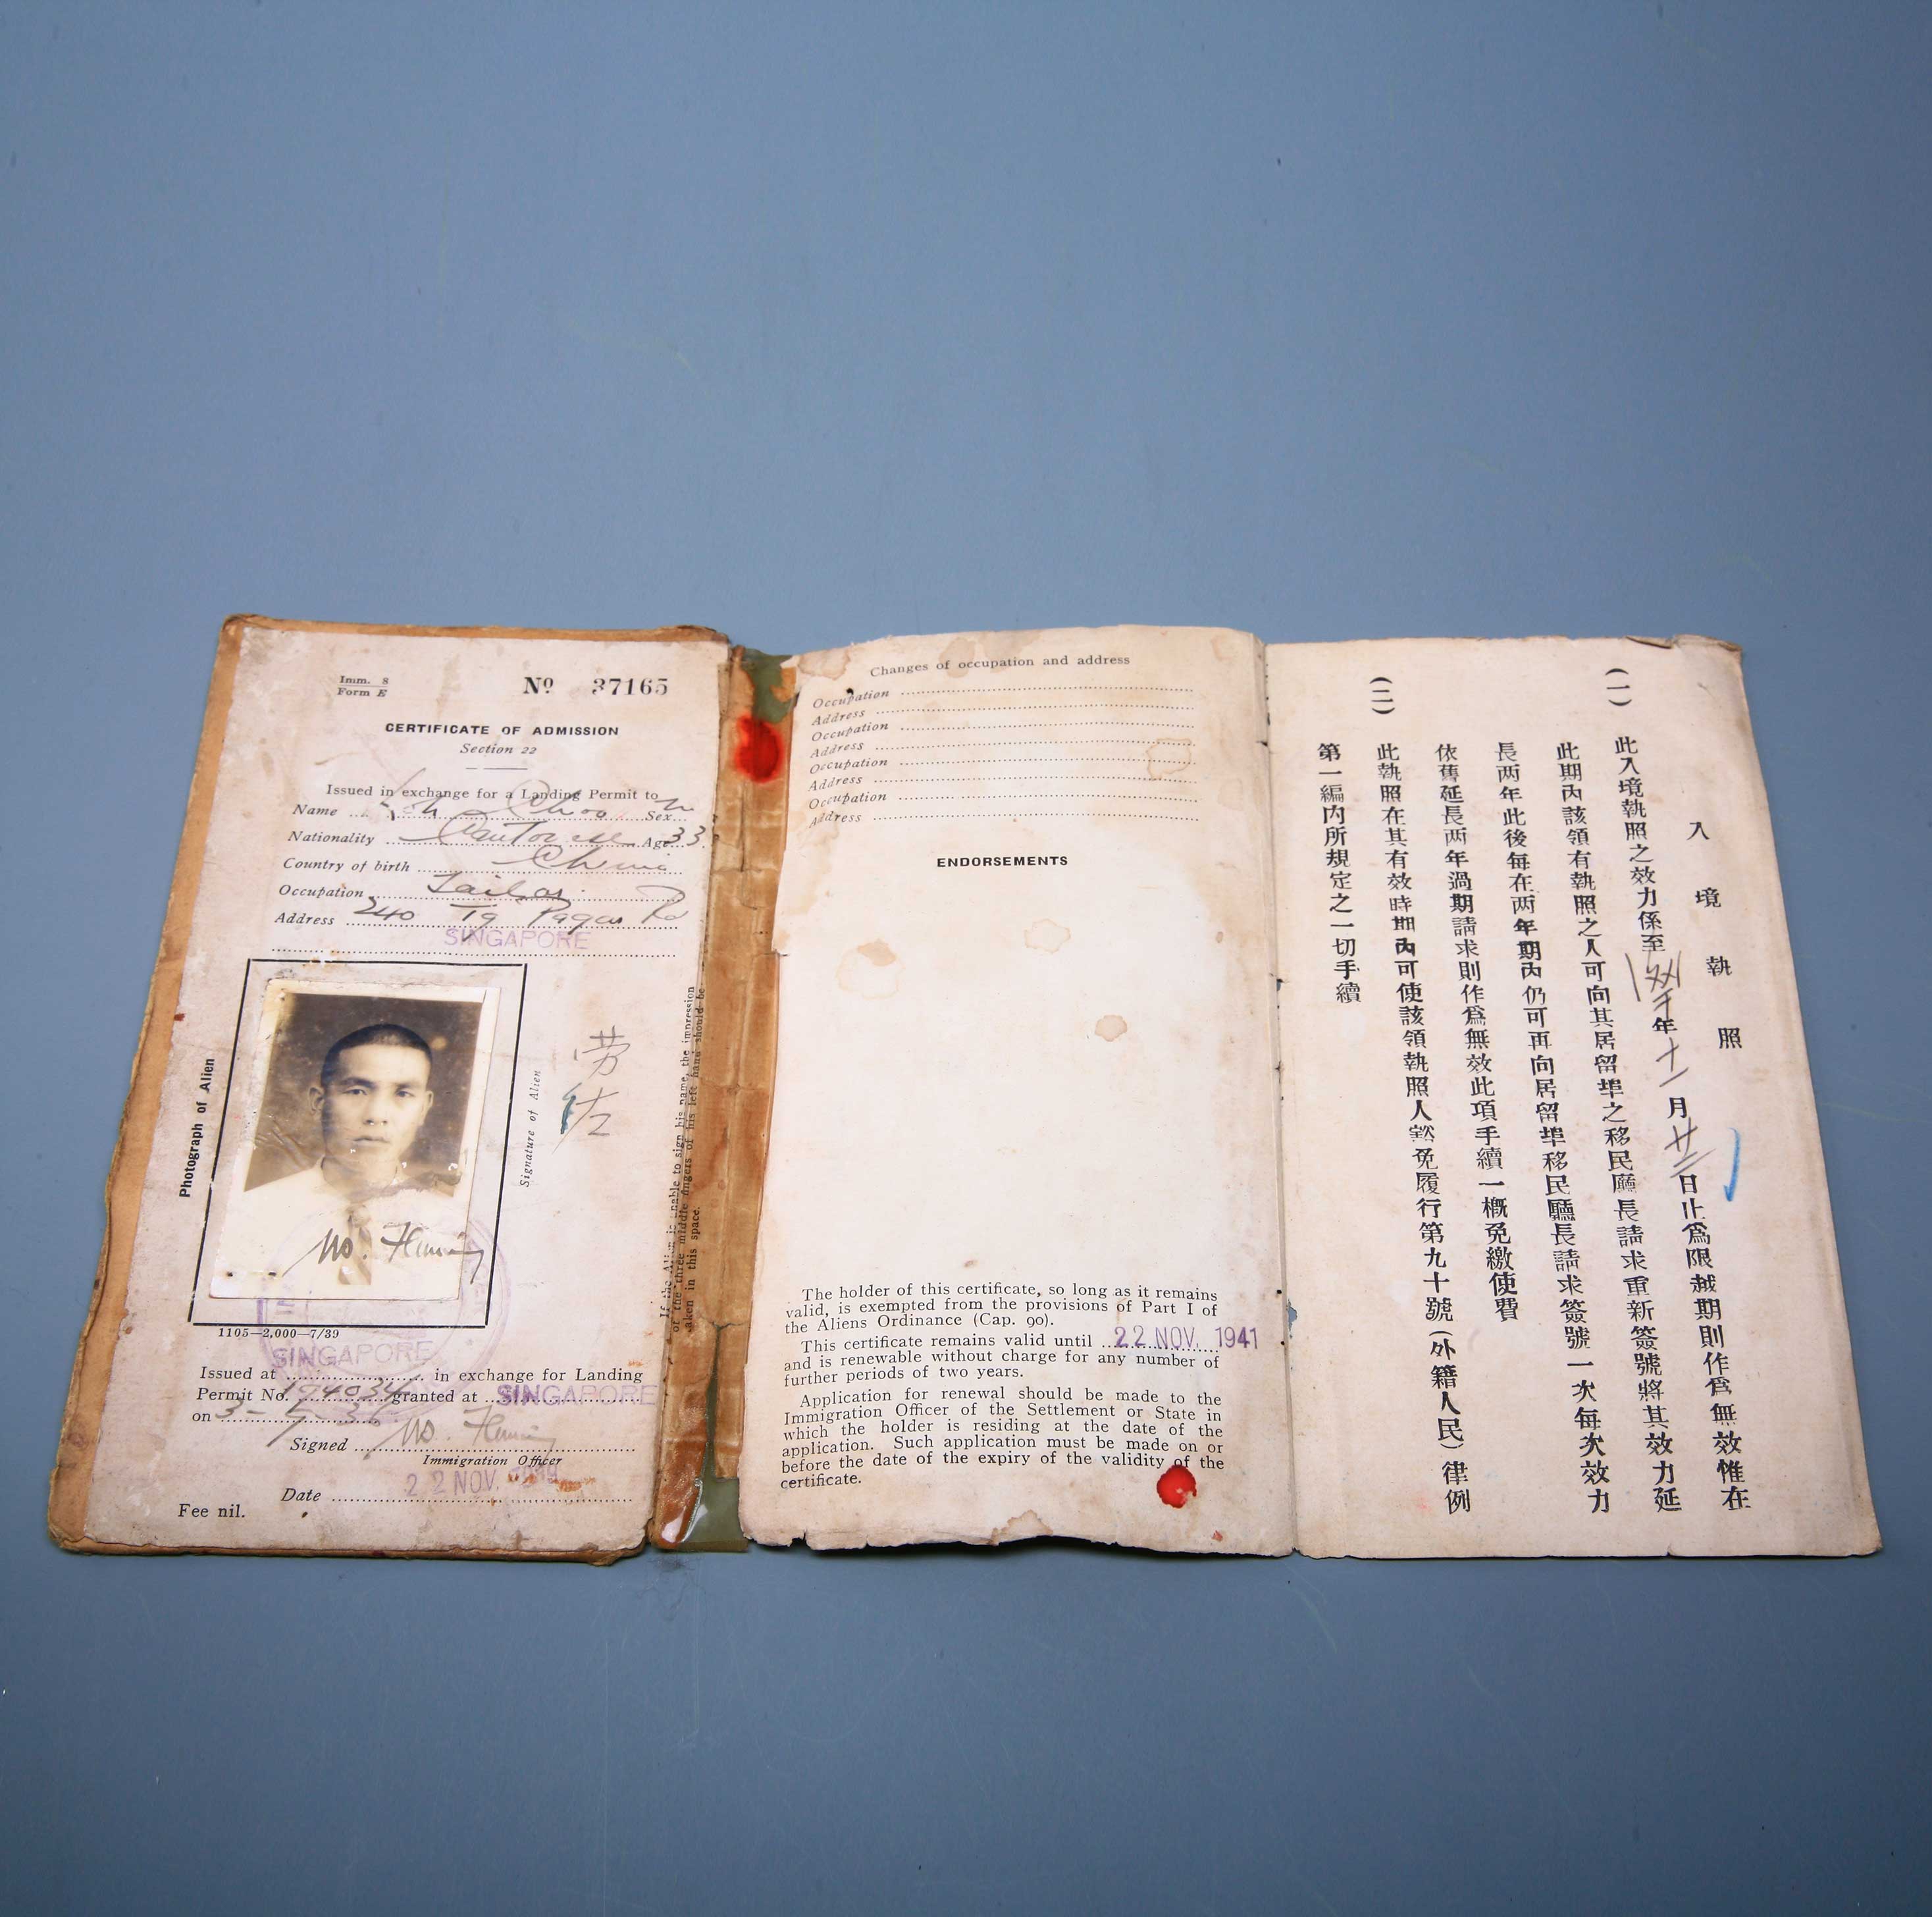 Imm. 8
Form E
Nº 37165
CERTIFICATE OF ADMISSION
Section 22
Issued in exchange for a Landing Permit to
Name Choo Sex M
Nationality Cantonese Age 33
Country of birth China
Occupation Tailor
Address 240 Tg Pagar Rd
SINGAPORE
Photograph of Alien
Signature of Alien
劳佐
If the Alien is unable to sign his name, the impression
or the three middle fingers of his left hand should be
taken in this space.
1105—2,000—7/39
SINGAPORE
Issued at in exchange for Landing
Permit No. 194034 granted at SINGAPORE
on 3-5-36
Signed
Immigration Officer
22 NOV.
Date
Fee nil.
Changes of occupation and address
Occupation
Address
Occupation
Address
Occupation
Address
Occupation
Address
ENDORSEMENTS
The holder of this certificate, so long as it remains
valid, is exempted from the provisions of Part I of
the Aliens Ordinance (Cap. 90).
This certificate remains valid until 22 NOV. 1941
and is renewable without charge for any number of
further periods of two years.
Application for renewal should be made to the
Immigration Officer of the Settlement or State in
which the holder is residing at the date of the
application. Such application must be made on or
before the date of the expiry of the validity of the
certificate.
入境執照
(一) 此入境執照之效力係至年十一月廿二日止爲限越期則作爲無效惟在
此期內該領有執照之人可向其居留埠之移民廳長請求重新簽號將其效力延
長两年此後每在两年期內仍可再向居留埠移民廳長請求簽號一次每次效力
依舊延長两年過期請求則作爲無效此項手續一槪免繳使費
(二) 此執照在其有效時期內可使該領執照人豁免履行第九十號(外籍人民)律例
第一編內所規定之一切手續